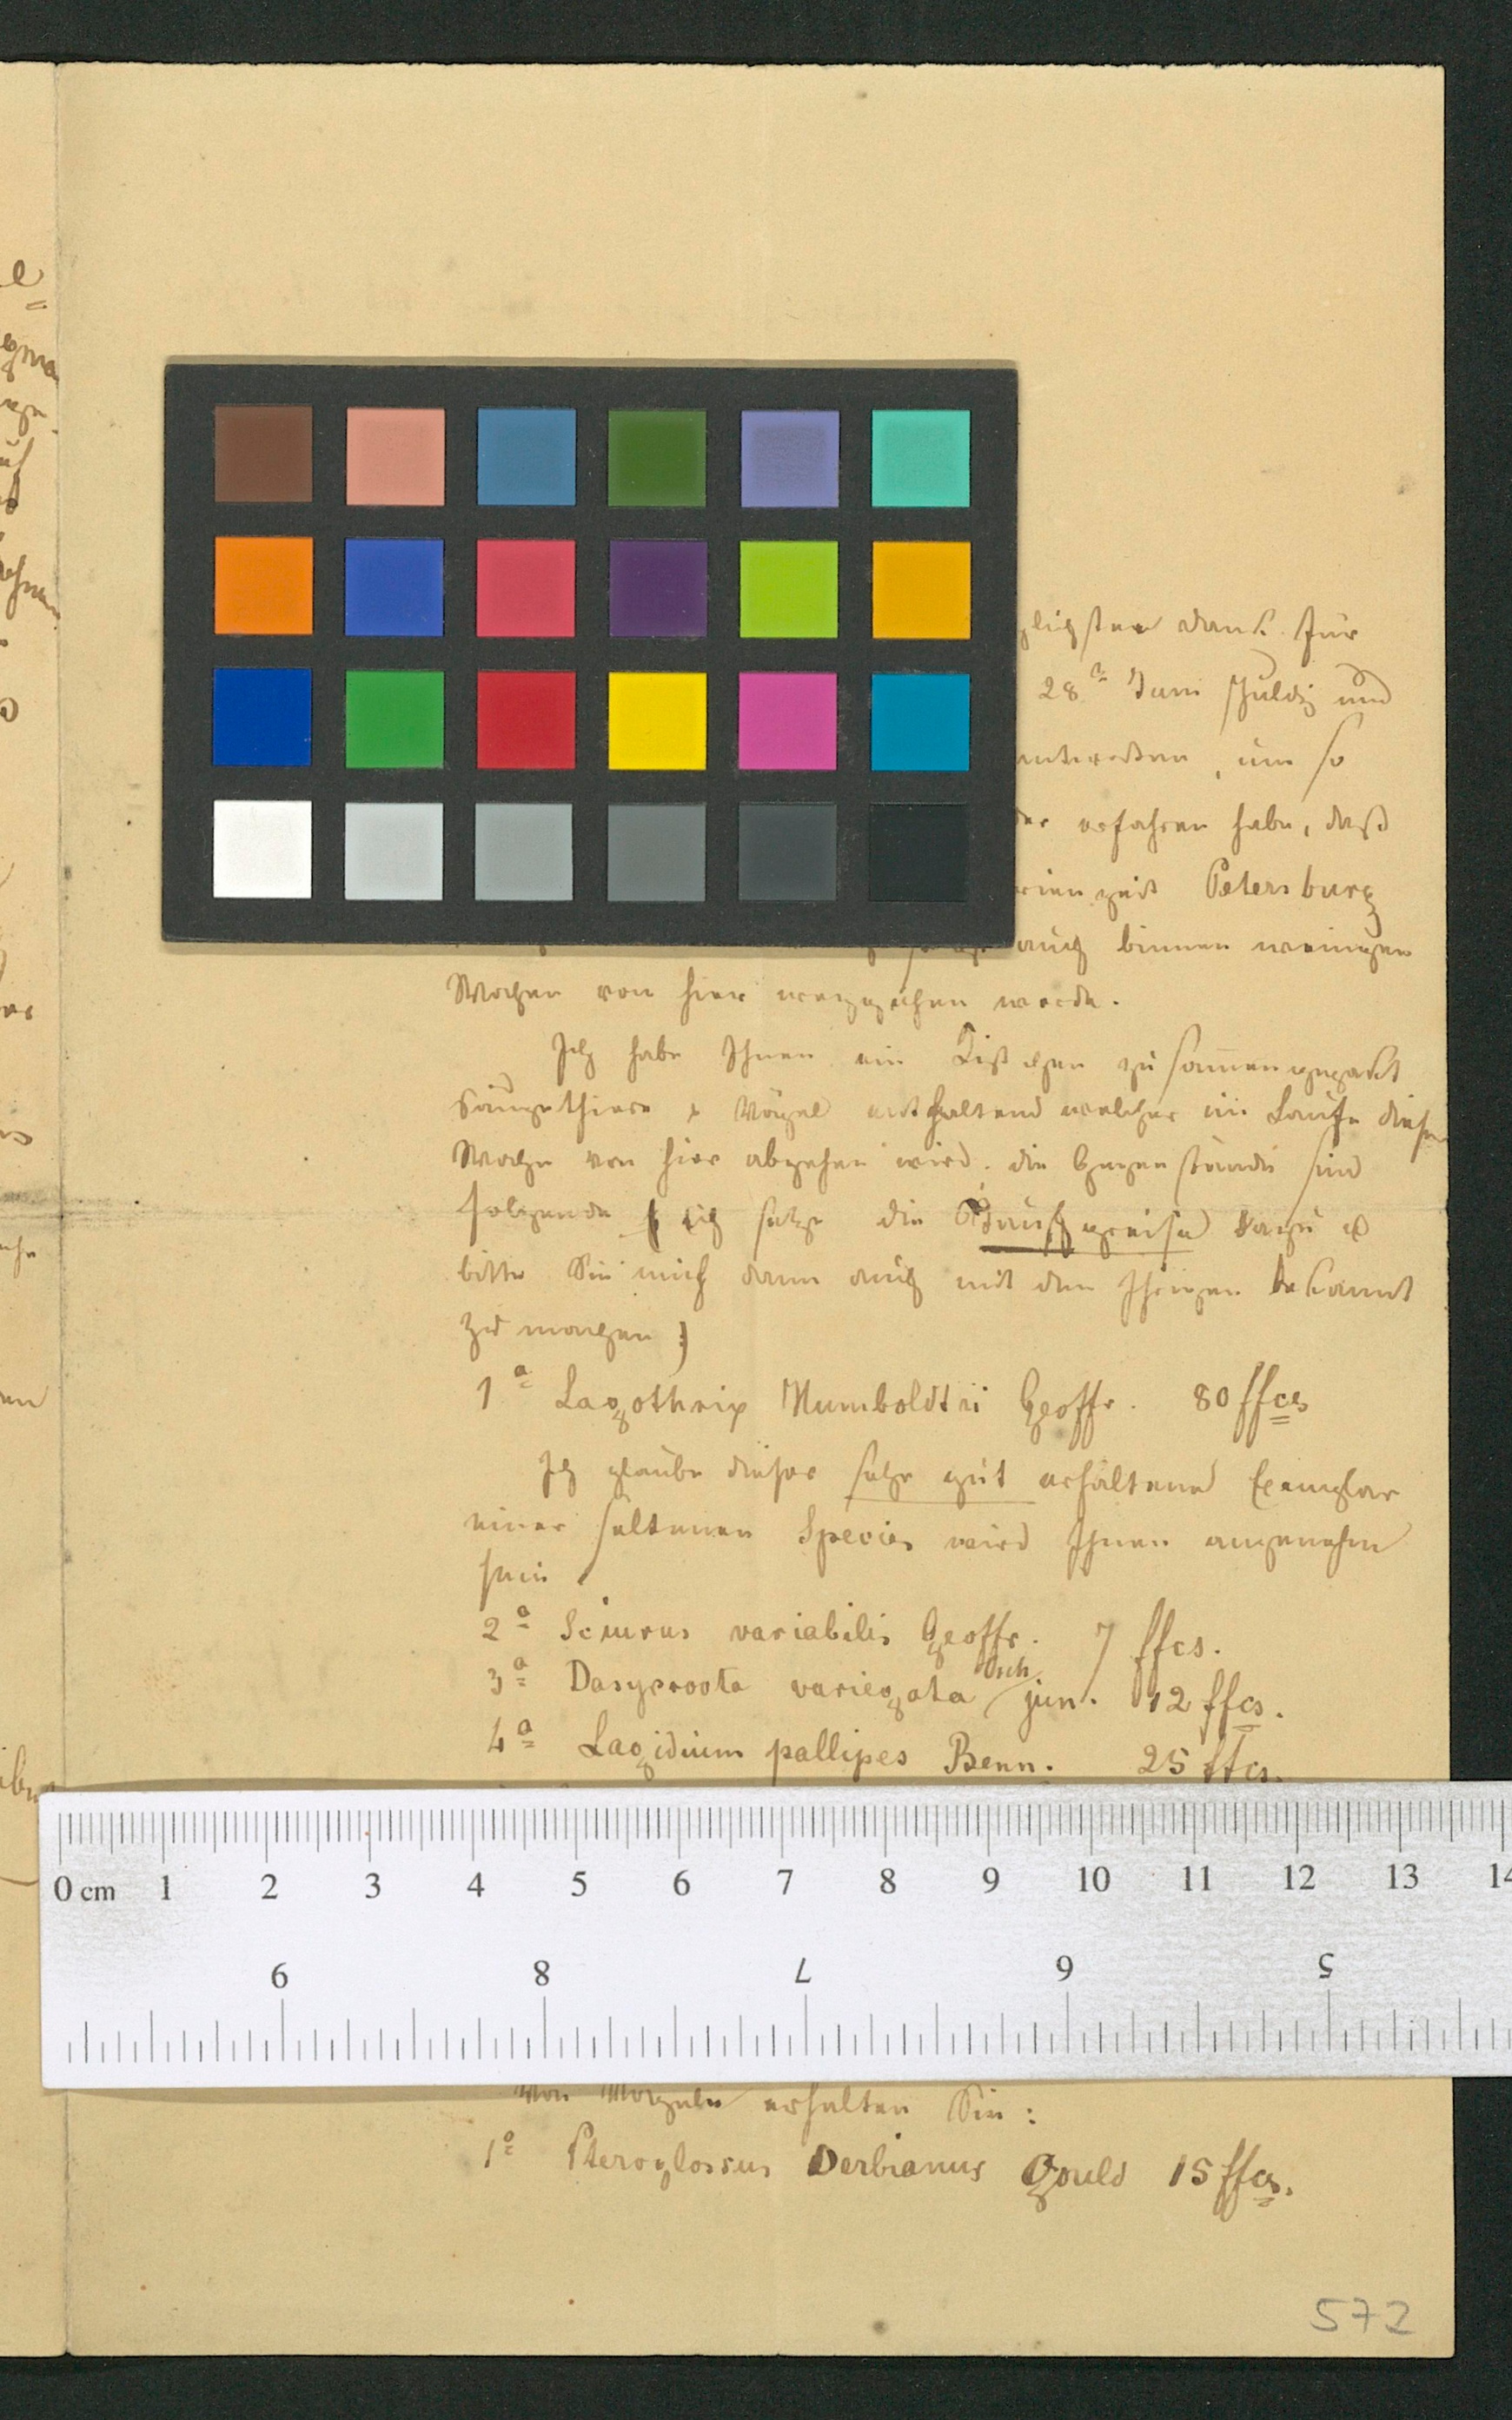 glichsten Dank für
28ⁿ Juni schuldig und
antworten, um so
der erfahren habe, daß
rienzeit Petersburg
auch binnen wenigen
Wochen von hier wegziehen werde.
Ich habe Ihnen ein Kistchen zusam̅engepackt
Säugethiere & Vögel enthaltend welches im Laufe dieser
Woche von hier abgehen wird. die Gegenstände sind
folgende ( ich setze die Tauschpreise dazu &
bitte Sie mich dann auch mit den Ihrigen bekannt
zu machen )
1ª Lagothrix Humboldtii Geoffr. 80 ffcs
Ich glaube dieses sehr gut erhaltene Exemplar
einer seltenen Species wird Ihnen angenehm
sein
2ª Sciurus variabilis Geoffr. 7 ffcs.
3ª Dasyprocta variegata Tsch jun. 12 ffcs.
4ª Lagidium pallipes Benn. 25 ffcs.
0 cm 1 2 3 4 5 6 7 8 9 10 11 12 13 14
9 8 7 6 5
Von Vögeln erhalten Sie:
1º Pteroglossus Derbianus Gould 15 ffcs.
572